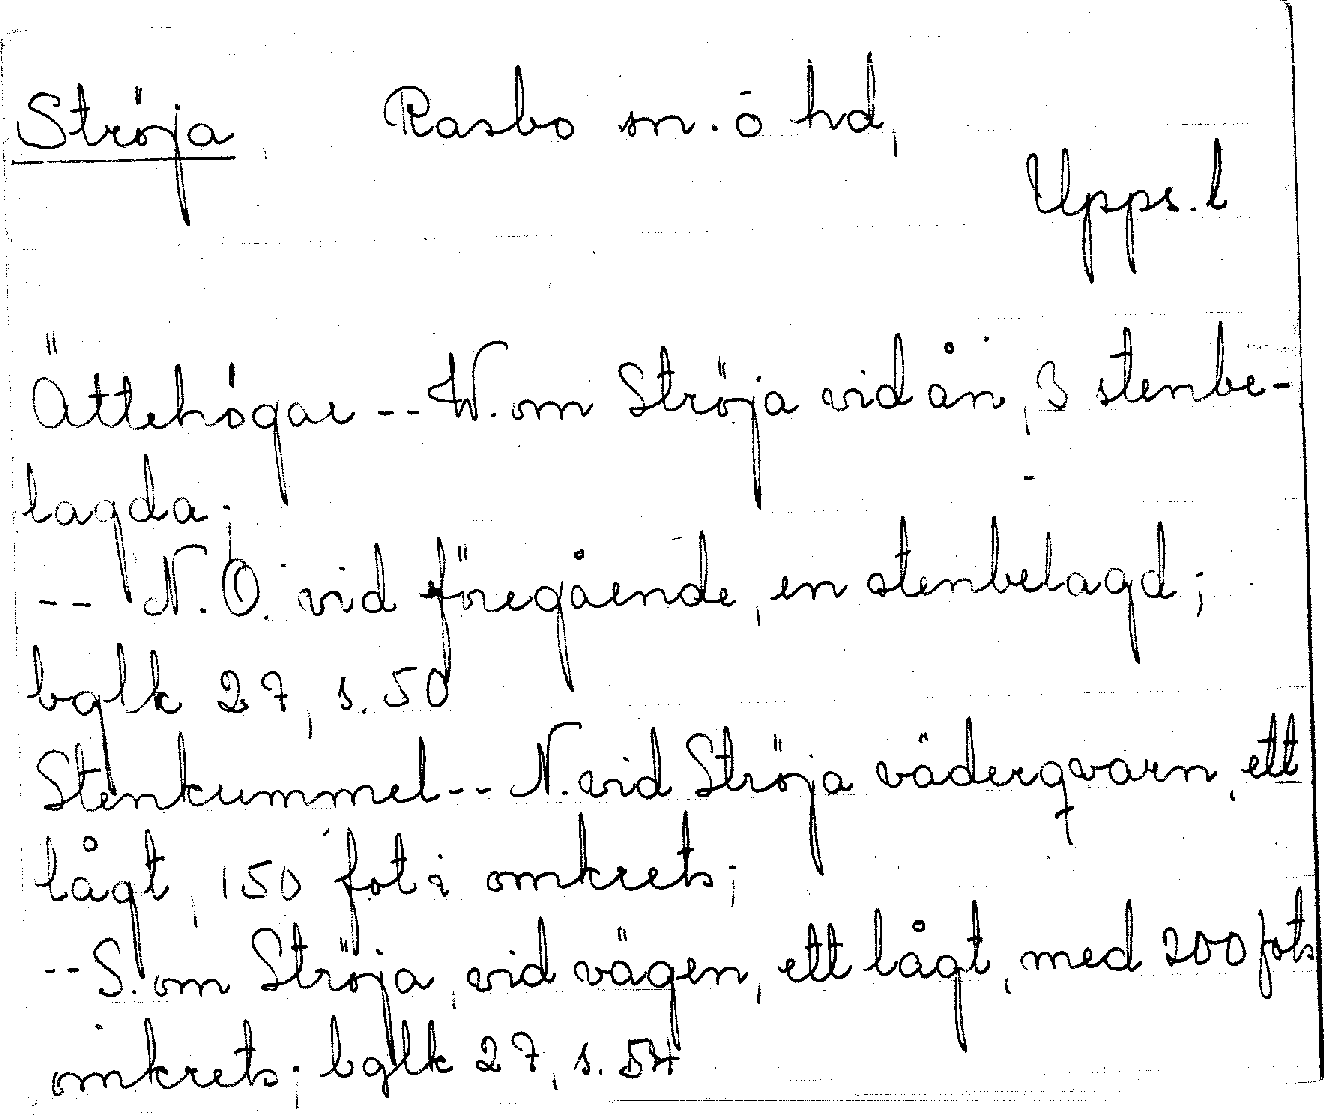 Ströja, Rasbo sn. o hd,
Upps. l
Ättehögar -- W. om Ströja vid ån, 3 stenbe-
lagda;
-- N. O. vid föregående, en stenbelagd;
bglk 27, s. 50
Stenkummel -- N. vid Ströja väderqvarn, ett
lågt, 150 fot i omkrets;
-- S. om Ströja, vid vägen, ett lågt, med 200 fots
omkrets; bglk 27, s. 54